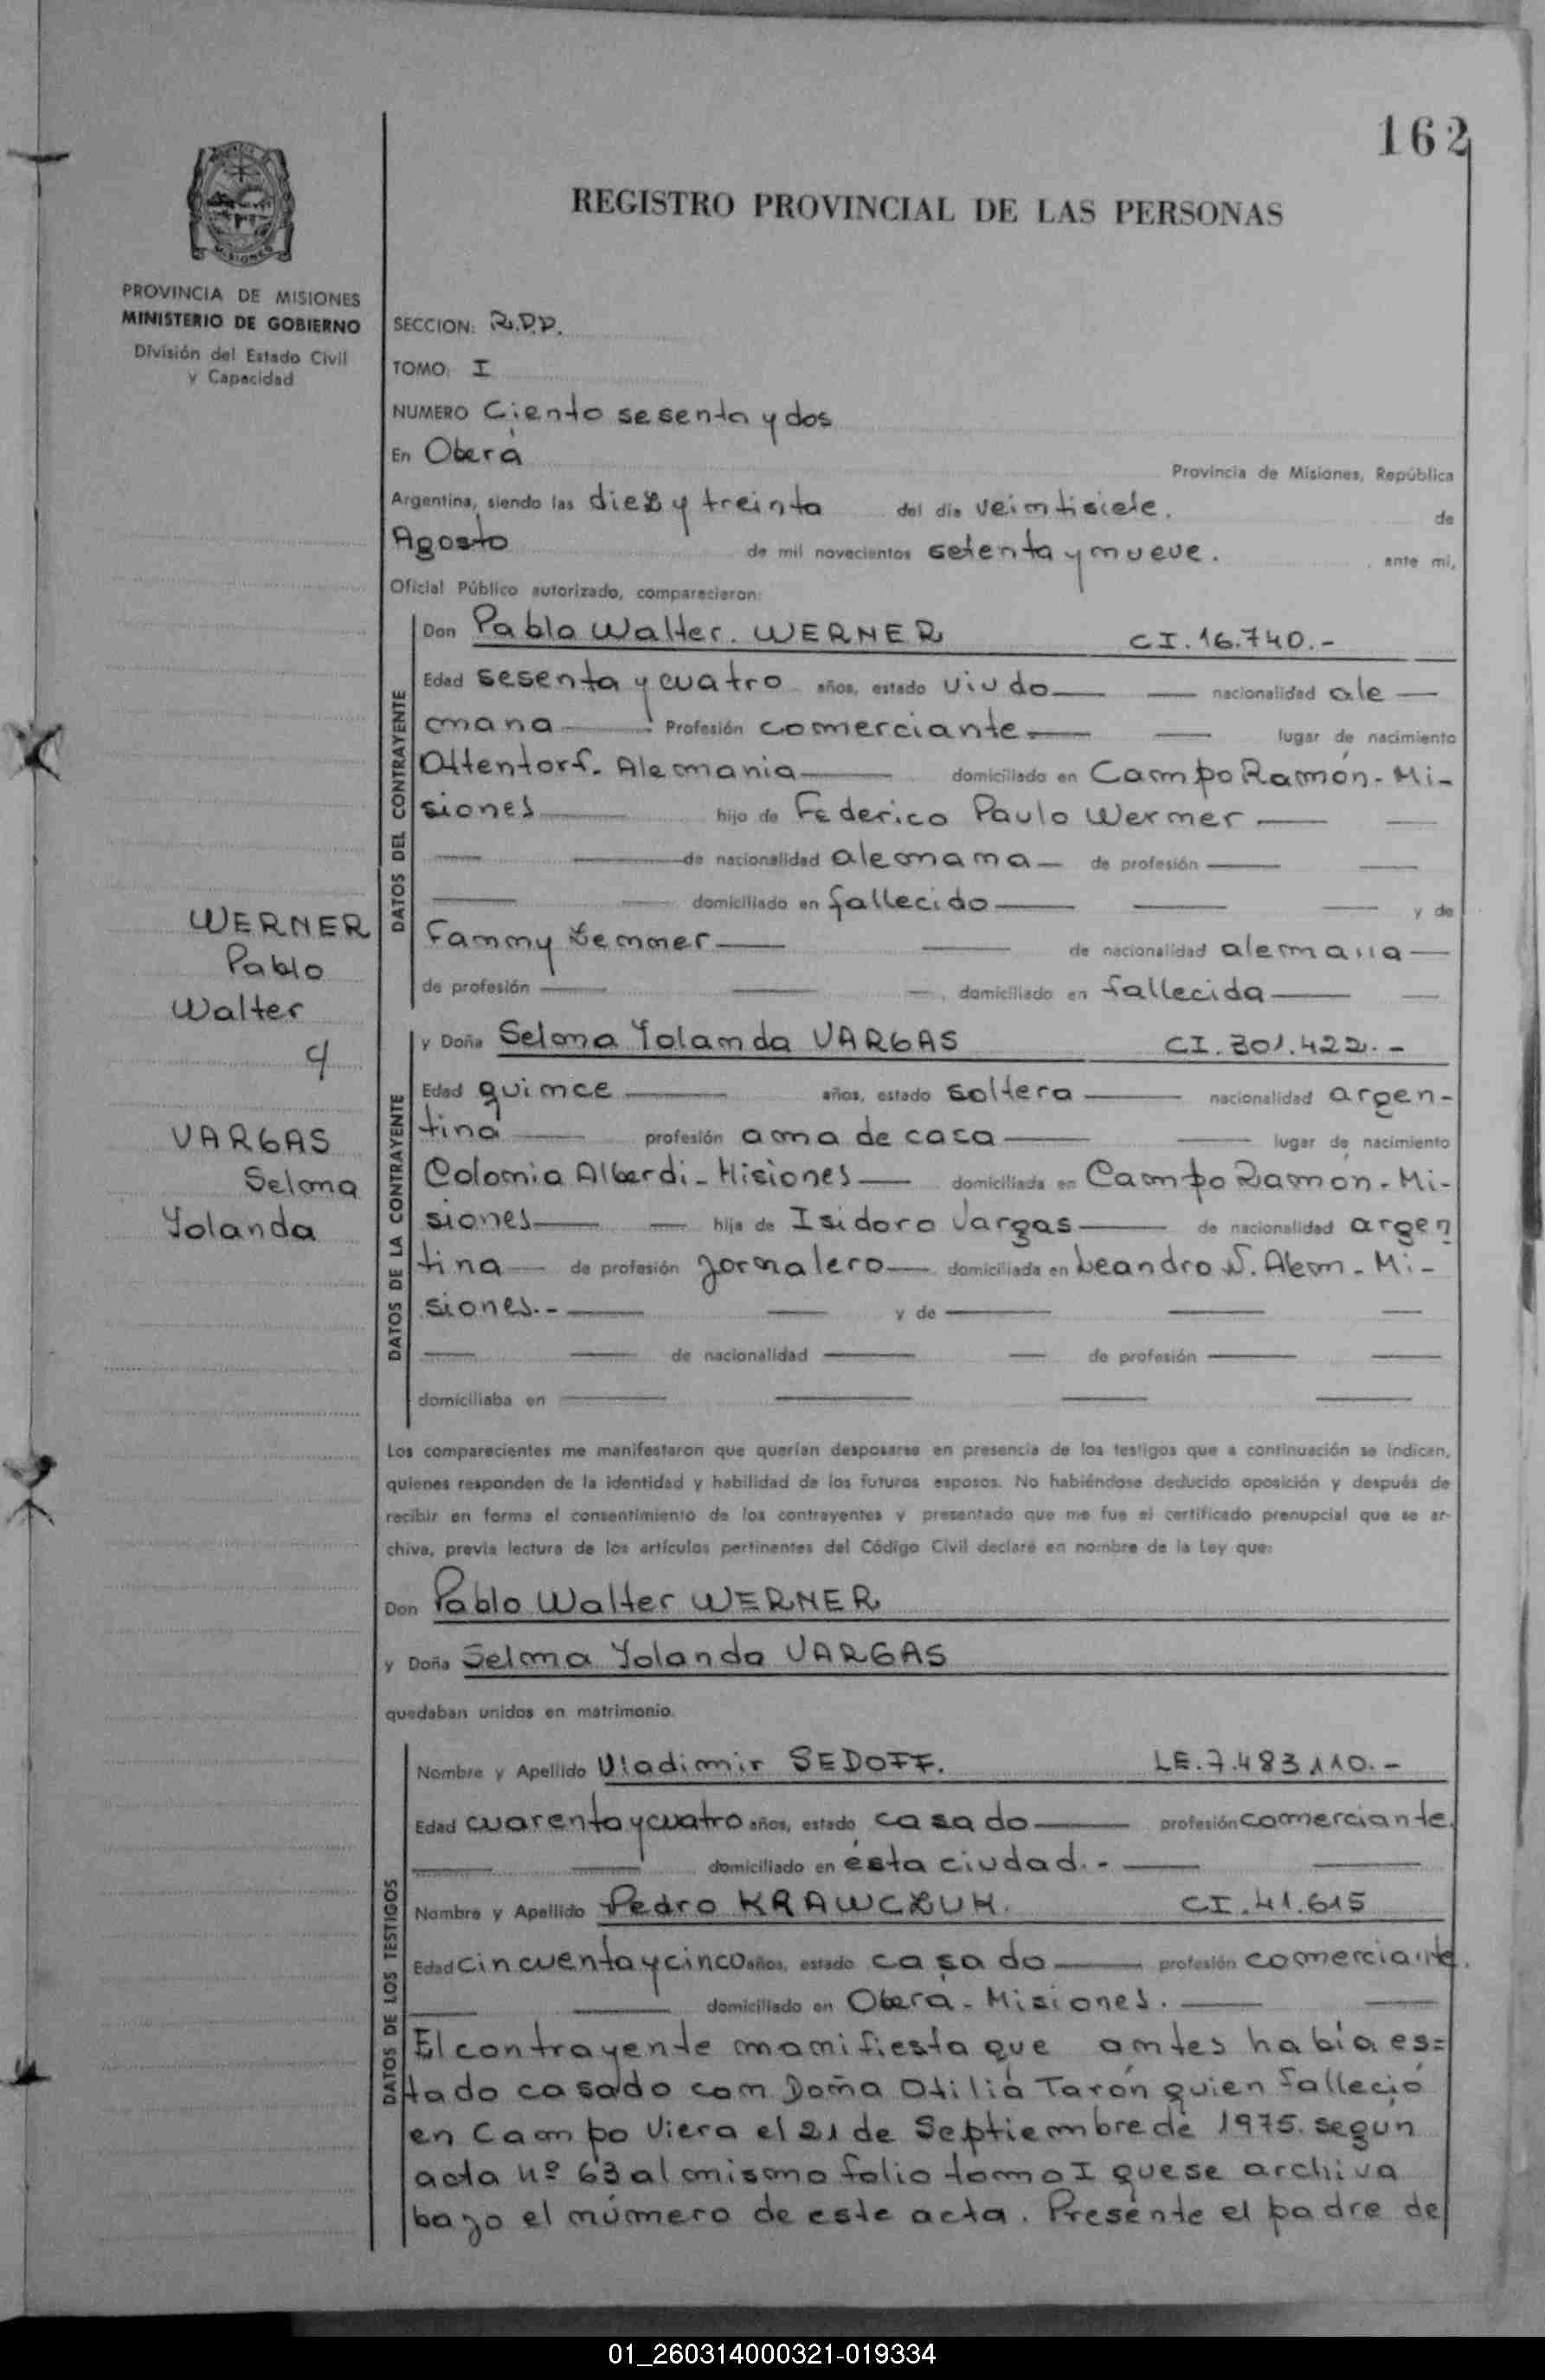 162
REGISTRO PROVINCIAL DE LAS PERSONAS
PROVINCIA DE MISIONES
MINISTERIO DE GOBIERNO
División del Estado Civil
y Capacidad
SECCION: R.P.P.
TOMO: I
NUMERO Ciento sesenta y dos
En Oberá
Provincia de Misiones, República
Argentina, siendo las diez y treinta del día veintisiete. de
Agosto de mil novecientos setenta y nueve. ante mi,
Oficial Público autorizado, comparecieron:
DATOS DEL CONTRAYENTE
Don Pablo Walter. WERNER CI.16.740.-
Edad sesenta y cuatro años, estado viudo nacionalidad ale
mana Profesión comerciante lugar de nacimiento
Ottentorf. Alemania domiciliado en Campo Ramón - Mi-
siones hijo de Federico Paulo Werner
de nacionalidad alemana de profesión
domiciliado en fallecido y de
Fanny de nacionalidad alemana
de profesión domiciliado en fallecida
WERNER
Pablo
Walter
c/
VARGAS
Selma
Yolanda
DATOS DE LA CONTRAYENTE
y Doña Selma Yolanda VARGAS CI.301.422.-
Edad quince años, estado soltera nacionalidad argen-
tina profesión ama de casa lugar de nacimiento
Colonia Alberdi - Misiones domiciliada en Campo Ramón - Mi-
siones hija de Isidoro Vargas de nacionalidad argen
tina de profesión jornalero domiciliada en Leandro N. Alem - Mi-
siones.- y de
de nacionalidad de profesión
domiciliaba en
Los comparecientes me manifestaron que querían desposarse en presencia de los testigos que a continuación se indican,
quienes responden de la identidad y habilidad de los futuros esposos. No habiéndose deducido oposición y después de
recibir en forma el consentimiento de los contrayentes y presentado que me fue el certificado prenupcial que se ar-
chiva, previa lectura de los artículos pertinentes del Código Civil declaré en nombre de la Ley que:
Don Pablo Walter WERNER
y Doña Selma Yolanda VARGAS
quedaban unidos en matrimonio.
DATOS DE LOS TESTIGOS
Nombre y Apellido Vladimir SEDOFF. LE.7.483.110.-
Edad cuarenta y cuatro años, estado casado profesión comerciante.
domiciliado en ésta ciudad.-
Nombre y Apellido Pedro KRAWCZUK. CI.41.615
Edad cincuenta y cinco años, estado casado profesión comerciante.
domiciliado en Oberá - Misiones.
El contrayente manifiesta que antes había es=
tado casado con Doña Otilia Tarón quien falleció
en Campo Viera el 21 de Septiembre de 1975. según
acta Nº 63 al mismo folio tomo I que se archiva
bajo el número de este acta. Presente el padre de
01_260314000321-019334